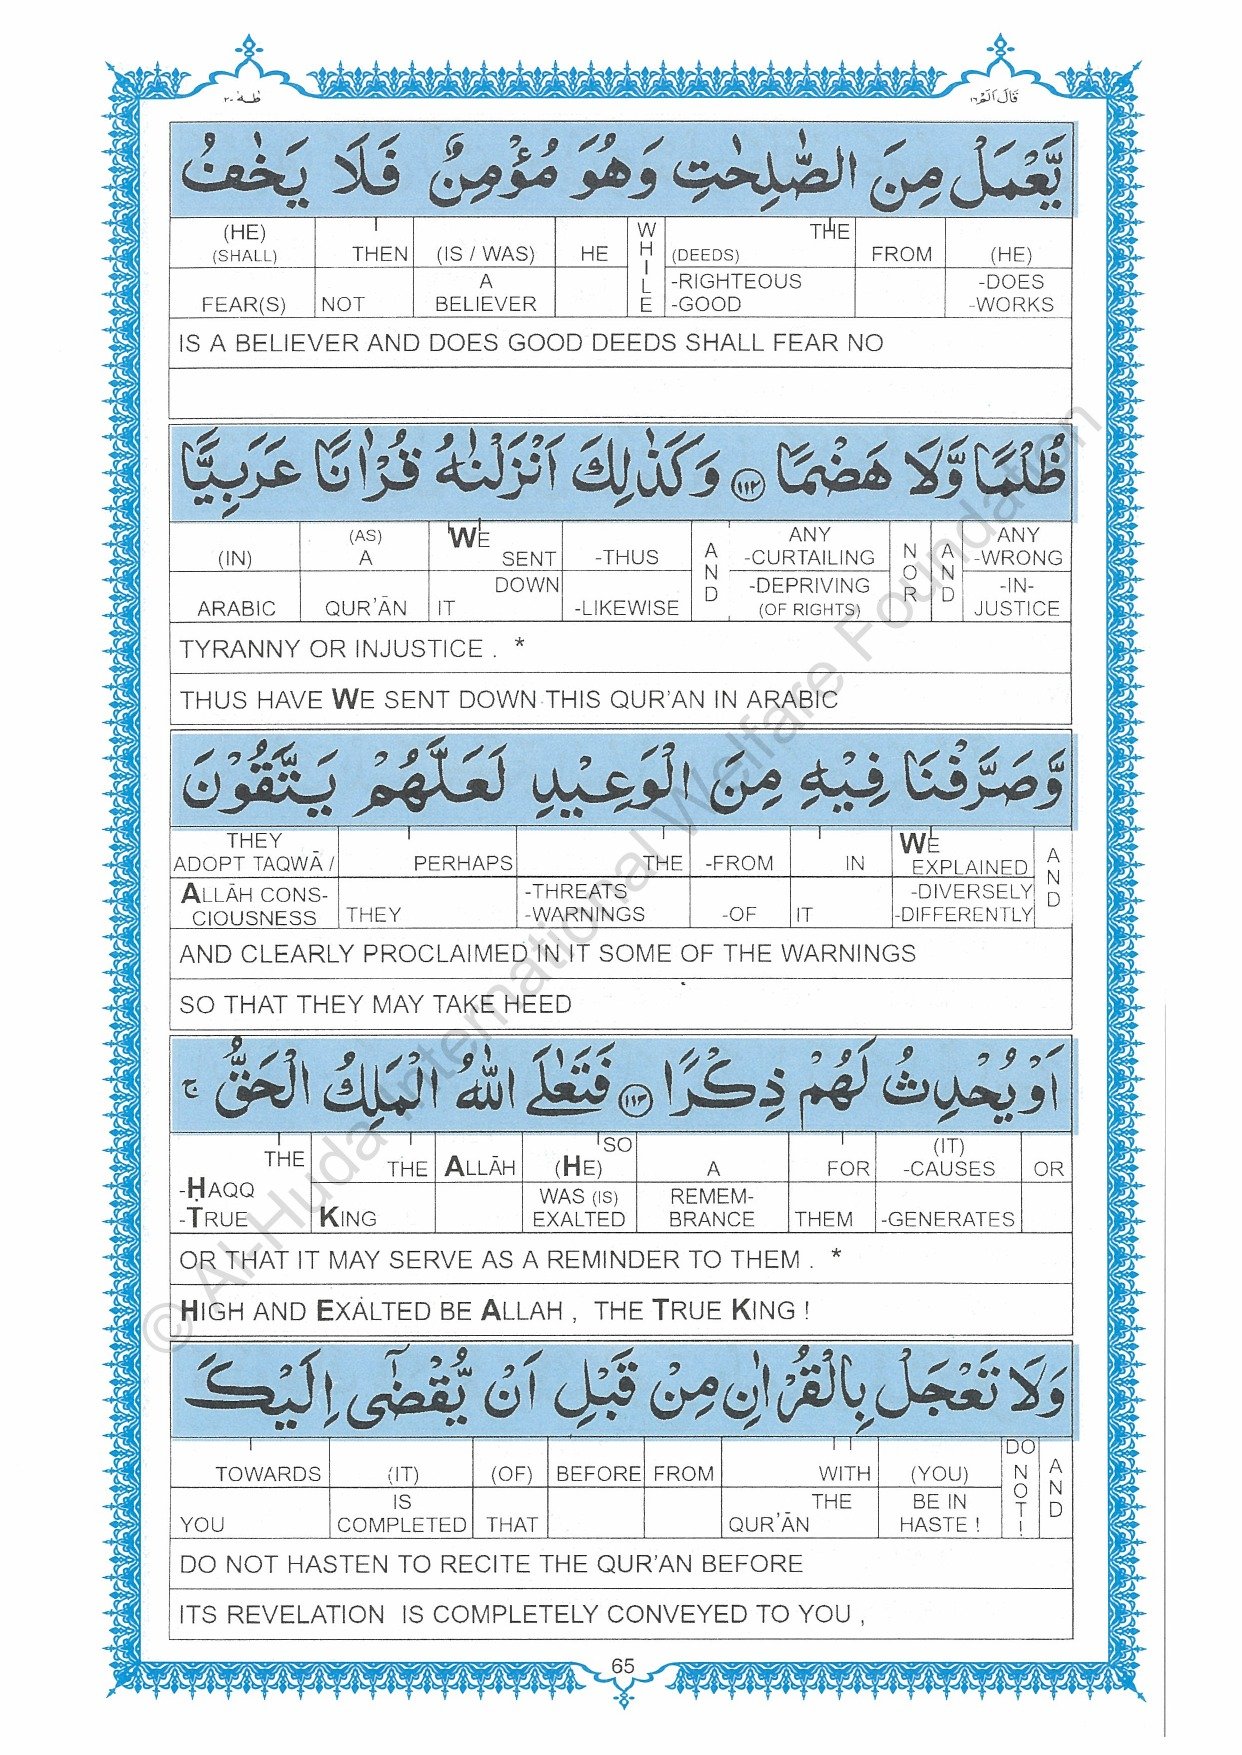 قَالَ اَلَمْ ١٦
طٰهٰ ٢٠
يَّعْمَلْ مِنَ الصّٰلِحٰتِ وَهُوَ مُؤْمِنٌ فَلَا يَخٰفُ
(HE) THEN (IS / WAS) HE WHILE THE FROM (HE)
(SHALL) (DEEDS)
FEAR(S) NOT A BELIEVER -RIGHTEOUS -GOOD -DOES -WORKS
IS A BELIEVER AND DOES GOOD DEEDS SHALL FEAR NO
ظُلْمًا وَّلَا هَضْمًا ﴿١١٢﴾ وَكَذٰلِكَ اَنْزَلْنٰهُ قُرْاٰنًا عَرَبِيًّا
(IN) (AS) A WE SENT -THUS AND ANY -CURTAILING NOR AND ANY -WRONG
ARABIC QUR’ĀN IT DOWN -LIKEWISE -DEPRIVING (OF RIGHTS) -IN-JUSTICE
TYRANNY OR INJUSTICE . *
THUS HAVE WE SENT DOWN THIS QUR’AN IN ARABIC
وَّصَرَّفْنَا فِيْهِ مِنَ الْوَعِيْدِ لَعَلَّهُمْ يَتَّقُوْنَ
THEY ADOPT TAQWĀ / PERHAPS THE -FROM IN WE EXPLAINED AND
ALLĀH CONS-CIOUSNESS THEY -THREATS -WARNINGS -OF IT -DIVERSELY -DIFFERENTLY
AND CLEARLY PROCLAIMED IN IT SOME OF THE WARNINGS
SO THAT THEY MAY TAKE HEED
اَوْ يُحْدِثُ لَهُمْ ذِكْرًا ﴿١١٣﴾ فَتَعٰلَى اللّٰهُ الْمَلِكُ الْحَقُّ ج
THE THE ALLĀH SO (HE) A FOR (IT) -CAUSES OR
-ḤAQQ -TRUE KING WAS (IS) EXALTED REMEM-BRANCE THEM -GENERATES
OR THAT IT MAY SERVE AS A REMINDER TO THEM . *
HIGH AND EXALTED BE ALLAH , THE TRUE KING !
وَلَا تَعْجَلْ بِالْقُرْاٰنِ مِنْ قَبْلِ اَنْ يُّقْضٰٓى اِلَيْكَ
TOWARDS (IT) (OF) BEFORE FROM WITH (YOU) DO NOT! AND
YOU IS COMPLETED THAT THE QUR’ĀN BE IN HASTE !
DO NOT HASTEN TO RECITE THE QUR’AN BEFORE
ITS REVELATION IS COMPLETELY CONVEYED TO YOU ,
65
© Al-Huda International Welfare Foundation